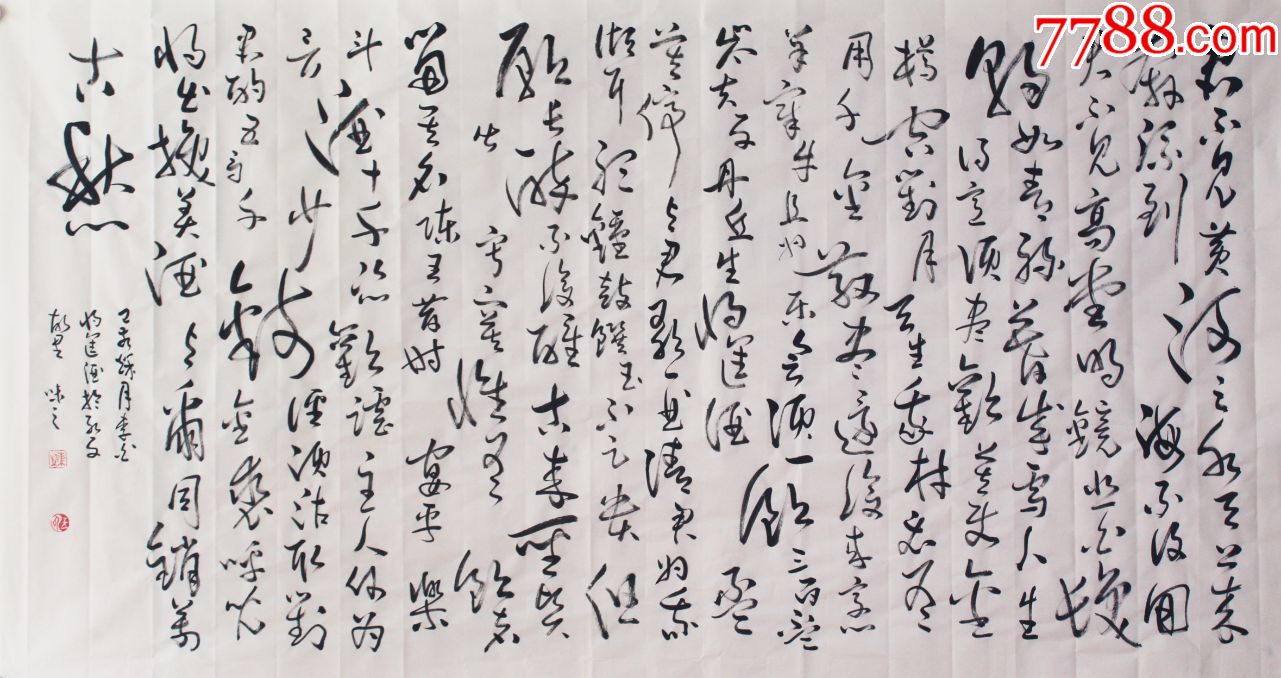 7788.com
君不见黄河之水天上来
奔流到海不复回
君不见高堂明镜悲白发
朝如青丝暮成雪人生
得意须尽欢莫使金
樽空对月天生我材必有
用千金散尽还复来烹
羊宰牛且为乐会须一饮三百杯
岑夫子丹丘生将进酒杯
莫停与君歌一曲请君为我
倾耳听钟鼓馔玉不足贵但
愿长醉不复醒古来圣贤
皆寂寞惟有饮者
留其名陈王昔时宴平乐
斗酒十千恣欢谑主人何为
言少钱径须沽取对
君酌五花千金裘呼儿
将出换美酒与尔同销万
古愁